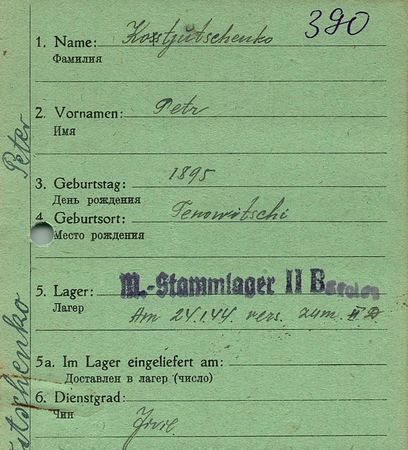 390
1. Name: Kostjutschenko
Фамилия
2. Vornamen: Petr
Имя
3. Geburtstag: 1895
День рождения
4. Geburtsort: Tenowitschi
Место рождения
5. Lager: M.-Stammlager II B
Лагер Am 24.1.44 vers. zum II D
5a. Im Lager eingeliefert am:
Доставлен в лагер (число)
6. Dienstgrad:
Чин Zivil
Peter